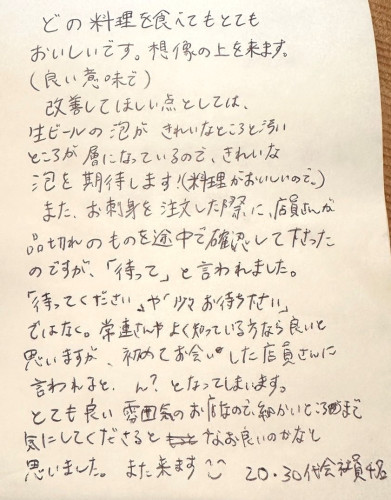 どの料理を食べてもとても
おいしいです。想像の上を来ます。
(良い意味で)
改善してほしい点としては、
生ビールの泡が きれいなところと汚い
ところが層になっているので、きれいな
泡を期待します!(料理がおいしいので。)
また、お刺身を注文した際に、店員さんが
品切れのものを途中で確認して下さった
のですが、「待って」と言われました。
「待ってください」や「少々お待ち下さい」
ではなく。常連さんやよく知っている方なら良いと
思いますが、初めてお会いした店員さんに
言われると、ん?となってしまいます。
とても良い雰囲気のお店なので、細かいところまで
気にしてくださると なお良いのかなと
思いました。また来ます
20・30代会社員